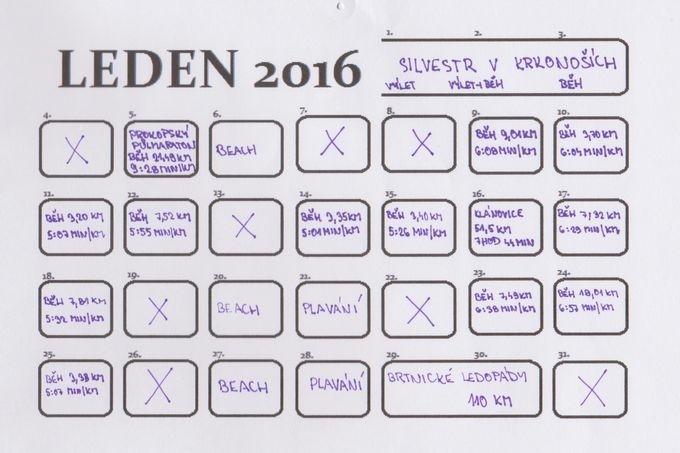 LEDEN 2016
1. 2. 3.
SILVESTR V KRKONOŠÍCH
VÝLET VÝLET+BĚH BĚH
4.
X
5.
PROKOPSKÝ
PŮLMARATON
BĚH 21,49 KM
9:28 MIN/KM
6.
BEACH
7.
X
8.
X
9.
BĚH 9,01 KM
6:08 MIN/KM
10.
BĚH 9,70 KM
6:04 MIN/KM
11.
BĚH 9,20 KM
5:07 MIN/KM
12.
BĚH 7,52 KM
5:55 MIN/KM
13.
X
14.
BĚH 9,35 KM
5:01 MIN/KM
15.
BĚH 9,40 KM
5:26 MIN/KM
16.
KLÁNOVICE
51,5 KM
7HOD 44 MIN
17.
BĚH 7,32 KM
6:29 MIN/KM
18.
BĚH 7,81 KM
5:32 MIN/KM
19.
X
20.
BEACH
21.
PLAVÁNÍ
22.
X
23.
BĚH 7,49 KM
6:38 MIN/KM
24.
BĚH 18,01 KM
6:57 MIN/KM
25.
BĚH 9,38 KM
5:07 MIN/KM
26.
X
27.
BEACH
28.
PLAVÁNÍ
29. 30.
BRTNICKÉ LEDOPÁDY
110 KM
31.
X